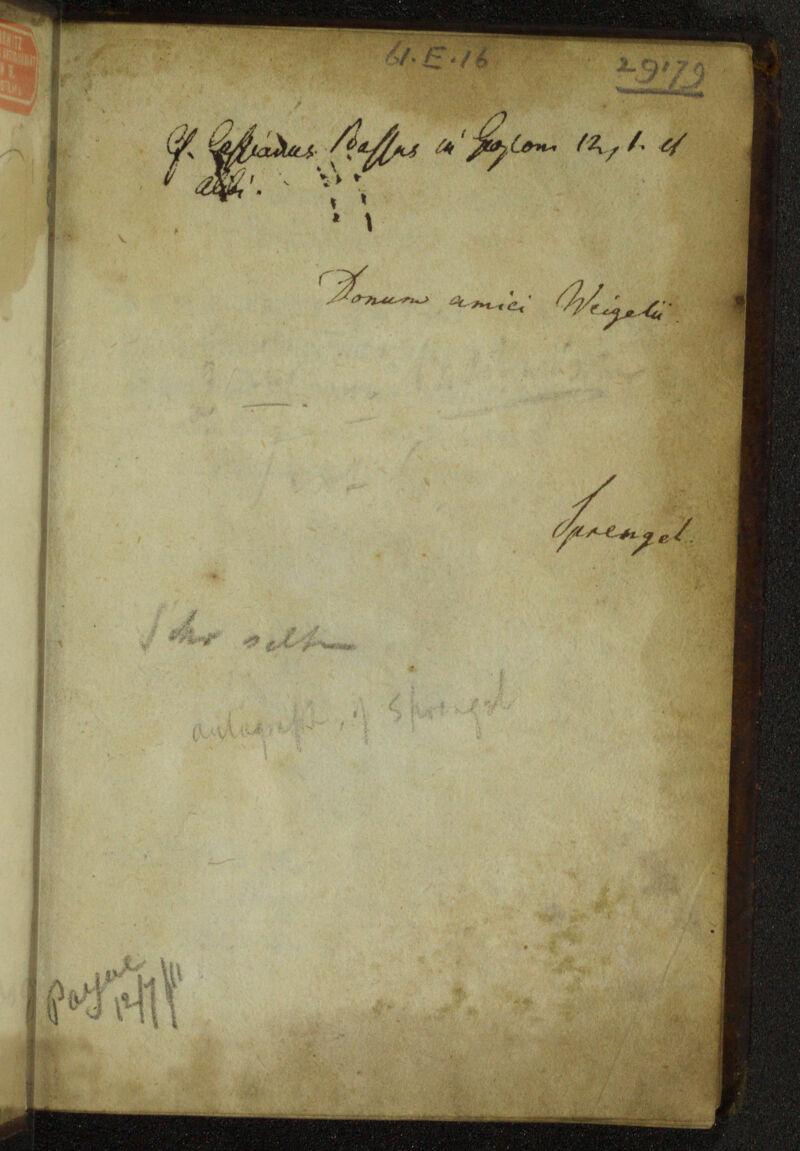 61.E.16
29'79
Cf. Cassianus Bassus in Geopon. 12, 1. et
alibi.
Donum amici Weigelii
Sprengel.
Sehr selten
autograph of Sprengel
Payne
12/7/11